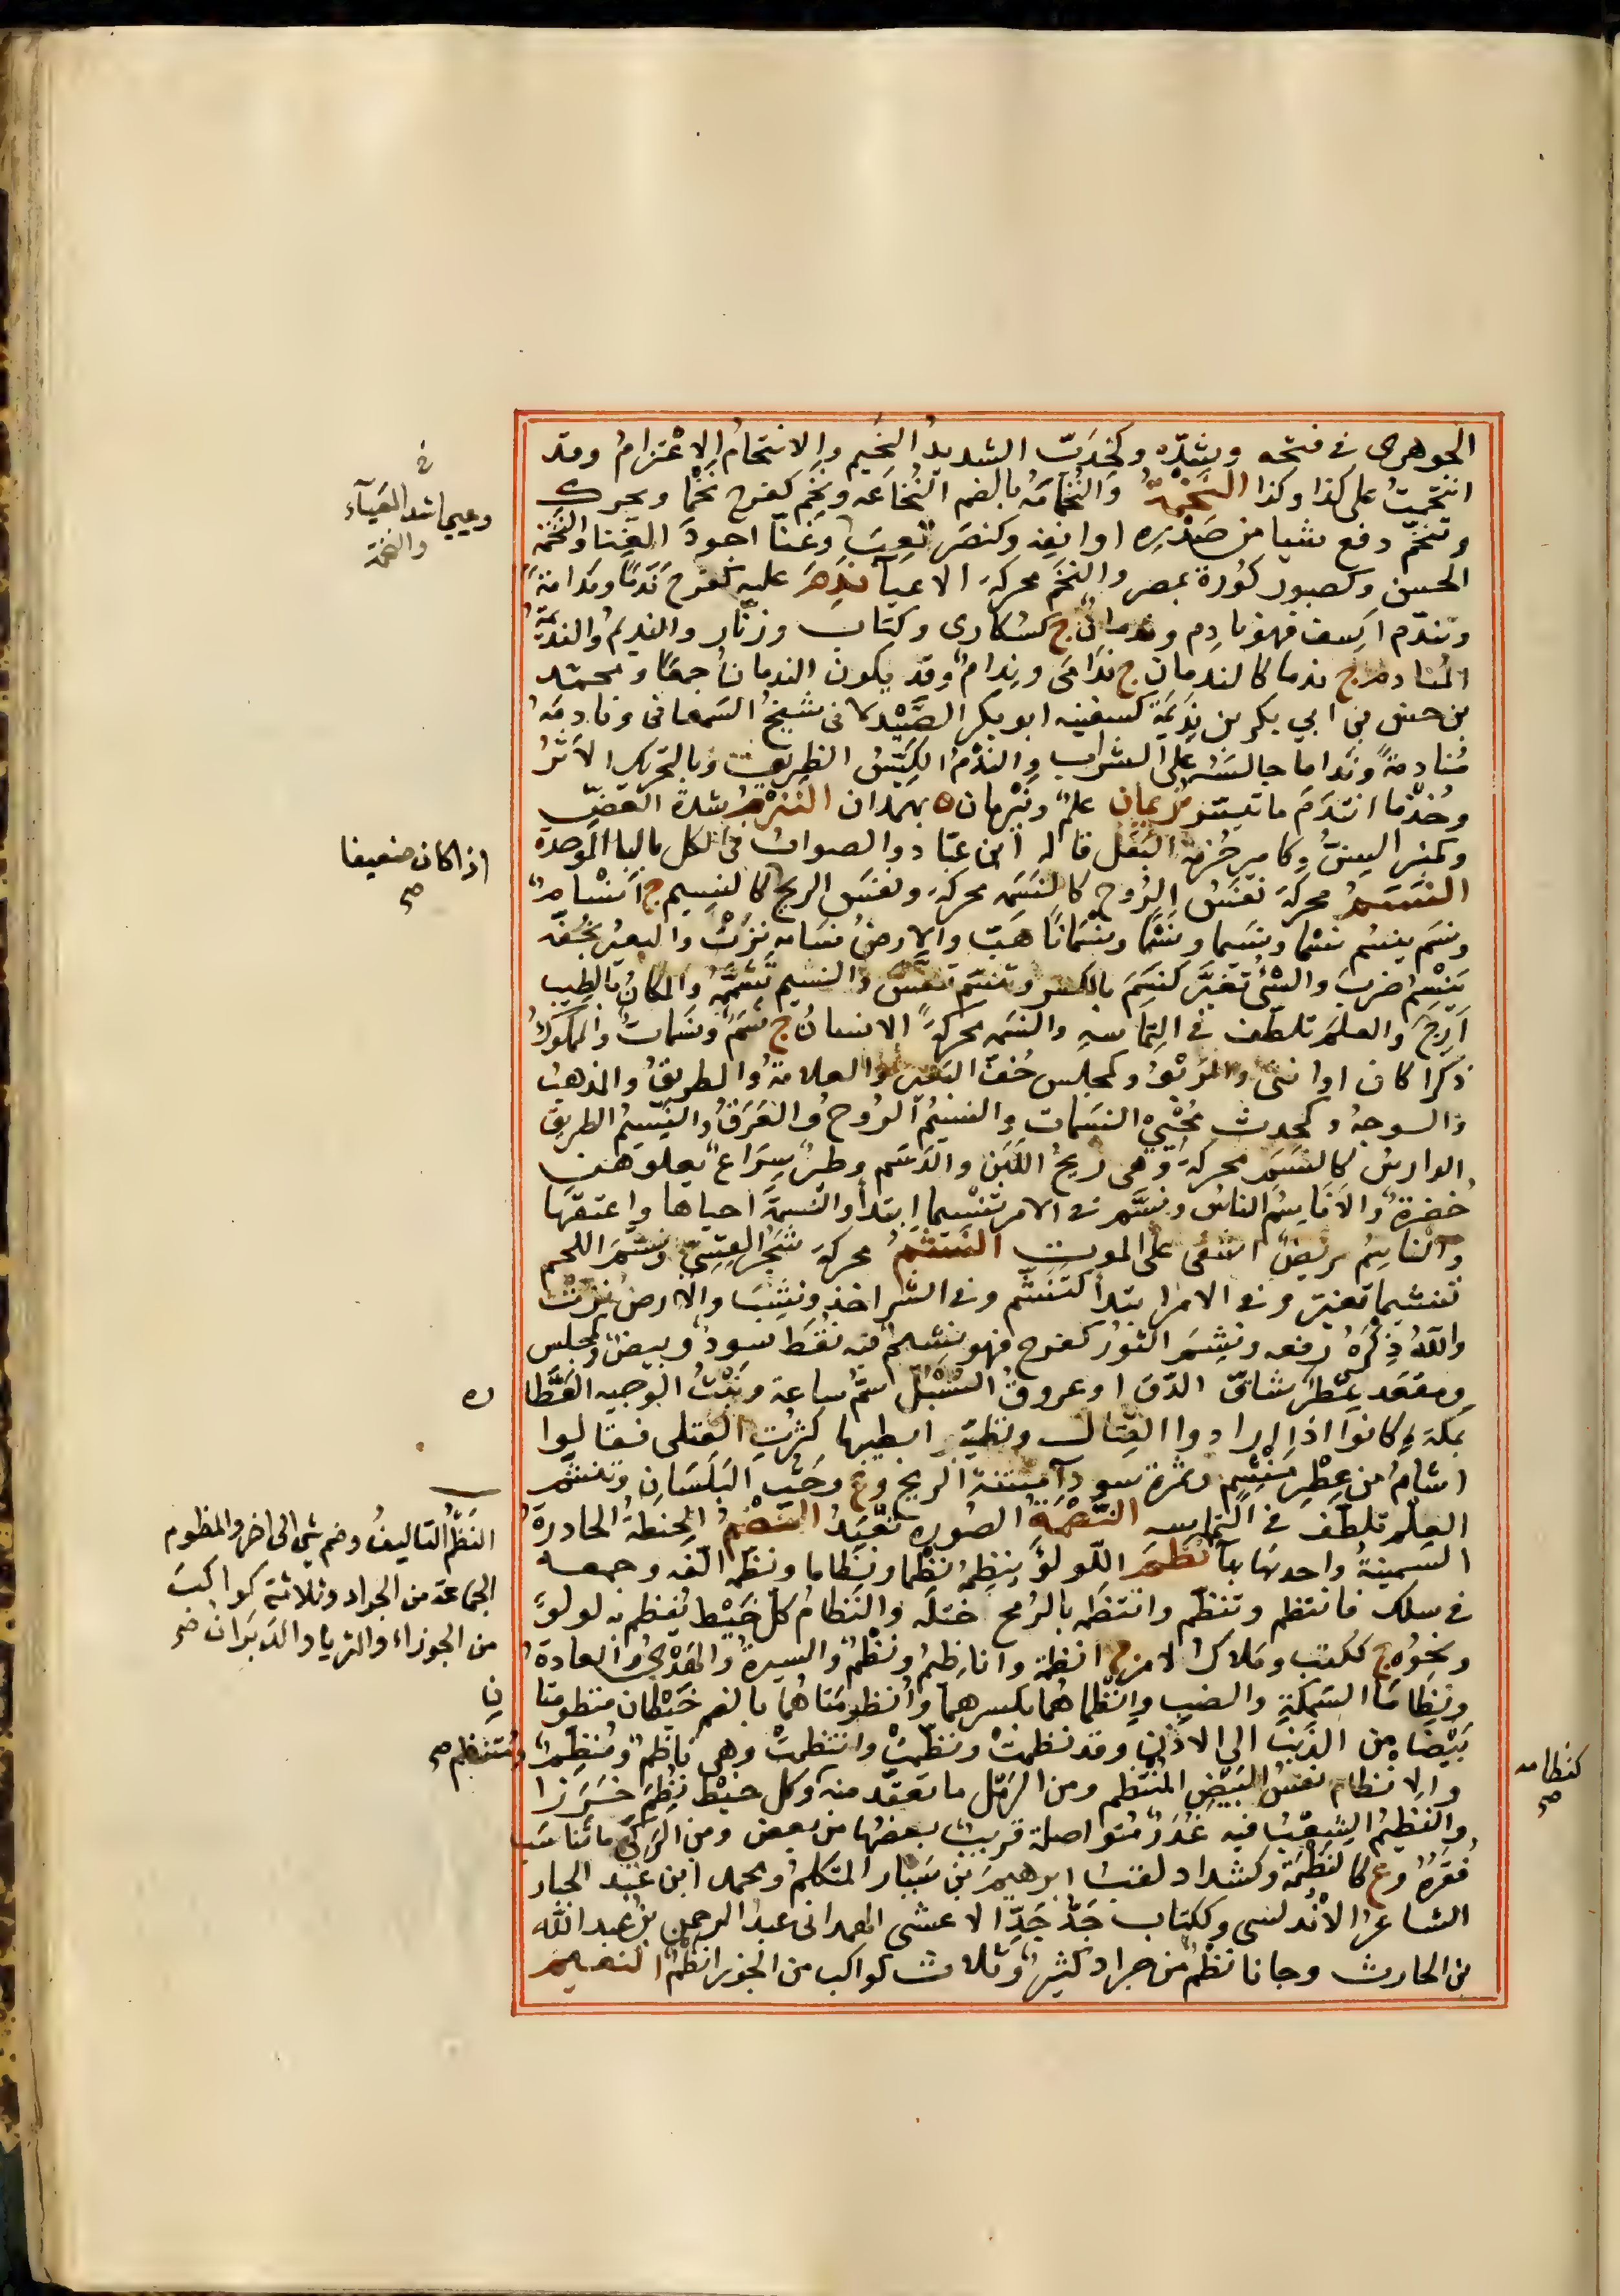 الجوهرى فى فتحه وشدّه وكخِدَبّ الشديدُ النَّحيم والانتحامُ الاعْتزامُ وقد
انتَحَمتُ على كذا وكذا النُّخْمَةُ والنُّخامَةُ بالضم النُّخاعَه ونخِمَ كفرح نَخْمًا ويحرك
وتنخّمَ دفع بشيا من صَدْرِه او انفِه وكنصَر لَعِبَ وغنّا اجودَ الغِنا والنَّخمَه
الحسن وكصبور كُورة بمصر والنَّخَمَ محركة الاعيا نَدِمَ عليه كفرح نَدَمًا ونَدامَةً
وتندّم اَسِف فهو نادِم وندمانٌ ج كسُكارى وكتاب وزنّار والنديمُ والنديمَةُ
المُنادم ج ندما كالندمان ج نَدَامَى ونِدامٌ وقد يكون الندمانُ جمعًا ومحمّد
بن حسن بن ابي بكر بن نَدِيمَة كسفينه ابو بكر الصَّيْدلانى شيخُ السَّمعانى ونادمَهُ
مُنادمةً ونِداما جالسَهُ على الشراب والنَّدْمُ الكَيّسُ الظريف وبالتحريك الاثَرُ
وخُذْ ما انتدَمَ ما تيسّر نَرِيمان علمٌ ونَرْمان ة بهمذان النزم شدةُ العَضّ
وكمنبر السِنُّ وكامير حُزمة البَقْل قاله ابن عبّاد والصواب فى الكل بالبا الموحدة
النَّسَمُ محركة نَفَسُ الرُّوح كالنسَمَه محركة ونفَس الريح كالنسيم ج انْسَامٌ
ونسَم ينسِم نَسْما ونَسيما ونَسَمًا ونسَمَانًا هبّ والارضُ نسَامه نزّتْ والبعيرُ بخُفّه
يَنْسِمُ ضربَ والشئُ تغيَّر كنسِمَ بالكسر وتنسّم تنفّس والنسيم تَشمَّمهُ والمكانُ بالطِيب
اَرِجَ والعلمَ تلطّف فى التماسه والنَّسمه محركةً الانسانُ ج نَسَمٌ ونَسَماتٌ والمملوكُ
ذكرا كان او انثى والرَّبْوُ وكمجلس خُفّ البَعير والعلامةُ والطريقُ والمذهب
والوجهُ وكمحدث مُحْيِي النسَمات والنَسيمُ الرُّوحُ والعَرَقُ والنَّيْسَمُ الطريق
الدارسُ كالنسَم محركةً وهى ريحُ اللَبَن والدَسَم وطيرٌ سِرَاعٌ يعلوهنّ
خُضرةٌ والاَناسِمُ الناسُ ونسَّم فى الامر تنسيما ابتدأ والنسمَةَ احياها واعتقَها
والناسِمُ مريضٌ اشفى على الموت النَّشَمُ محركة شجَرٌ للقِسِيّ ونشّمَ اللحم
تنشيما تغيّر وفى الامر ابتدأ كتنشّم وفى الشر اخذ ونشِبَ والارضُ نزّت
واللهُ ذِكْرَهُ رفعه ونشِمَ الثورُ كفرح فهو نشِمٌ فيه نُقَط سودٌ وبِيضٌ وكمجلس
ومقعَد عِطرٌ شاقّ الدَّقّ او قرون السُّنْبُل سَمُّ ساعة وبنْتُ الوجيه العَطَّا
بمكة وكانوا اذا ارادوا القِتال وتطيّبوا بطيبها كثُرَتِ القتلى فقالوا
اشأمُ من عِطْرِ مَنْشِم وثمرة سودآ مُنتنة الريح وع وحَبّ البَلَسَان وتنشّم
العلمَ تلطّف فى التماسه النَّصْمَةُ الصُورة تُعْبَدُ النَّضْمُ الحِنطةُ الحادرةُ
السمينةُ واحدتها بهآ نظَم اللُّولؤ ينظِمُ نظْما ونِظاما ونظّمه الّفه وجمعه
فى سلك فانتظم وتنظّم وانتظمه بالرُمح اختلّه والنِّظامُ كلّ خَيْط يُنظم به لولوٌ
ونحوُه ج ككُتب ومَلاكُ الامر ج انظمة وانَاظيمُ ونُظُمٌ والسيرةُ والهَدْىُ والعادةُ
ونِظاما السَمكةِ والضب وإنْظاماهُما بكسرهما وأُنظومَتاهُما بالضم خَيْطان منتظومان
بَيْضًا من الذنَب الى الاذُن وقد نظمتْ ونظّمتْ وانتظمتْ وهى ناظمٌ ومُنظّمٌ
والانظام نفسُ البَيْضِ المنتظم ومن الرّمل ما تعقّد منه وكل خيْط نُظِمَ خَرَزا
والنظيمُ الشِعبُ فيه غُدُرٌ مُتواصلة قريبٌ بعضُها من بعض ومن الرَكِيّ ماتناسَب
فُقَرُه وع كالنظيمة وكشداد لقبُ ابرهيم بن سَيّار المتكلم ومحمد ابن عَبد الجبار
الشاعر الاندلسى وككتاب جَدّ جَدِّ الاعشى الهمدانى عبد الرحمن بن عبد الله
بن الحارث وجانا نظمٌ من جراد كثيرٌ وثلاث كواكب من الجوزا نظمٌ النعيم
فى
وعييا اشد العَيآء
والنخمة
اذا كان ضعيفا
صح
ره
النَظْمُ التاليفُ وضم شى الى اخر والمنظوم
الجماعة من الجراد وثلاثة كواكبَ
من الجوزاء والثريا والدَبَران صح
نِ
ومُنتظم صح
كنظامه
صح